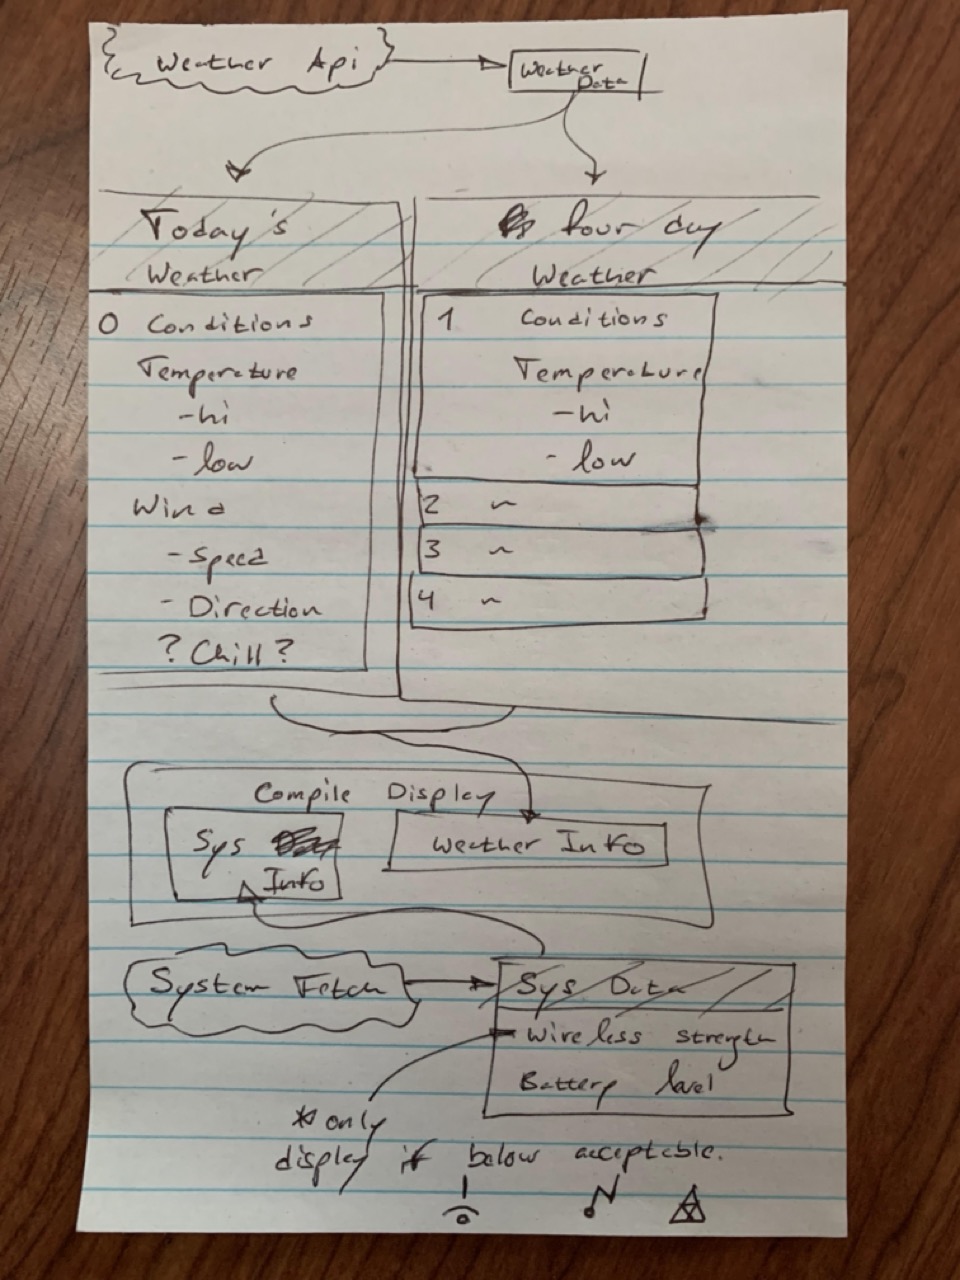 Weather Api
Weather
Data
Today's
Weather
four day
Weather
0 Conditions
Temperature
-hi
-low
Wind
-Speed
-Direction
? Chill ?
1 Conditions
Temperature
-hi
-low
2 ~
3 ~
4 ~
Compile Display
Sys
Info
Weather Info
System Fetch
Sys Data
Wireless strength
Battery level
* only
display if below acceptable.